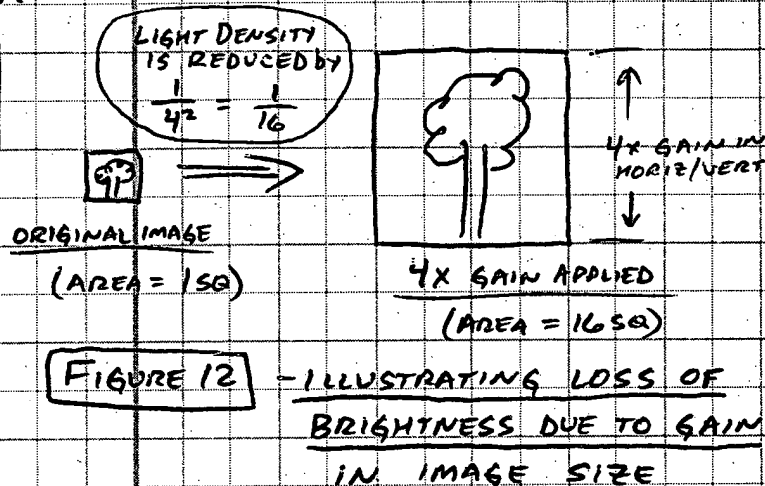 LIGHT DENSITY
IS REDUCED by
1/4² = 1/16
4X GAIN IN
HORIZ/VERT
ORIGINAL IMAGE
(AREA = 1SQ)
4X GAIN APPLIED
(AREA = 16 SQ)
FIGURE 12 - ILLUSTRATING LOSS OF
BRIGHTNESS DUE TO GAIN
IN IMAGE SIZE